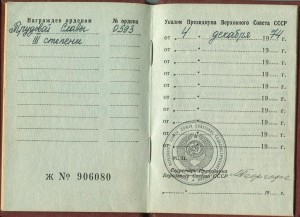 Награжден орденом № ордена
Трудовой Славы 0393
III степени
Ж № 906080
Указом Президиума Верховного Совета СССР
от 4 " декабря 1974 г.
от " 19 г.
от " 19 г.
от " 19 г.
от " 19 г.
от " 19 г.
от " 19 г.
от " 19 г.
19 г.
19 г.
М.П.
Секретарь Президиума
Верховного Совета СССР
" 19 г.